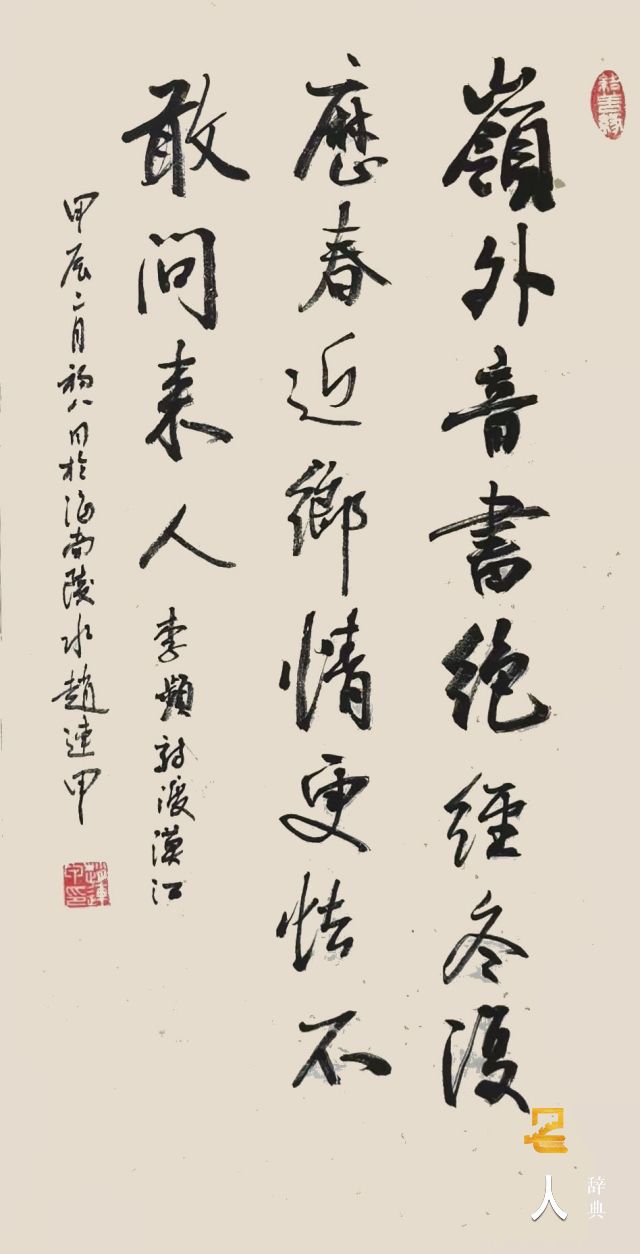 嶺外音書絶經冬復
歷春近鄉情更怯不
敢問来人
李頻詩渡漢江
甲辰二月初八日於海南陵水趙連甲
人
辞典